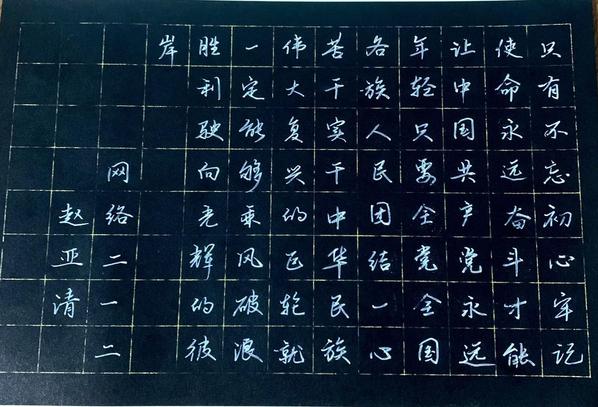 只有不忘初心牢记
使命永远奋斗才能
让中国共产党永远
年轻只要全党全国
各族人民团结一心
苦干实干中华民族
伟大复兴的巨轮就
一定能够乘风破浪
胜利驶向光辉的彼
岸
网络二一二
赵亚清